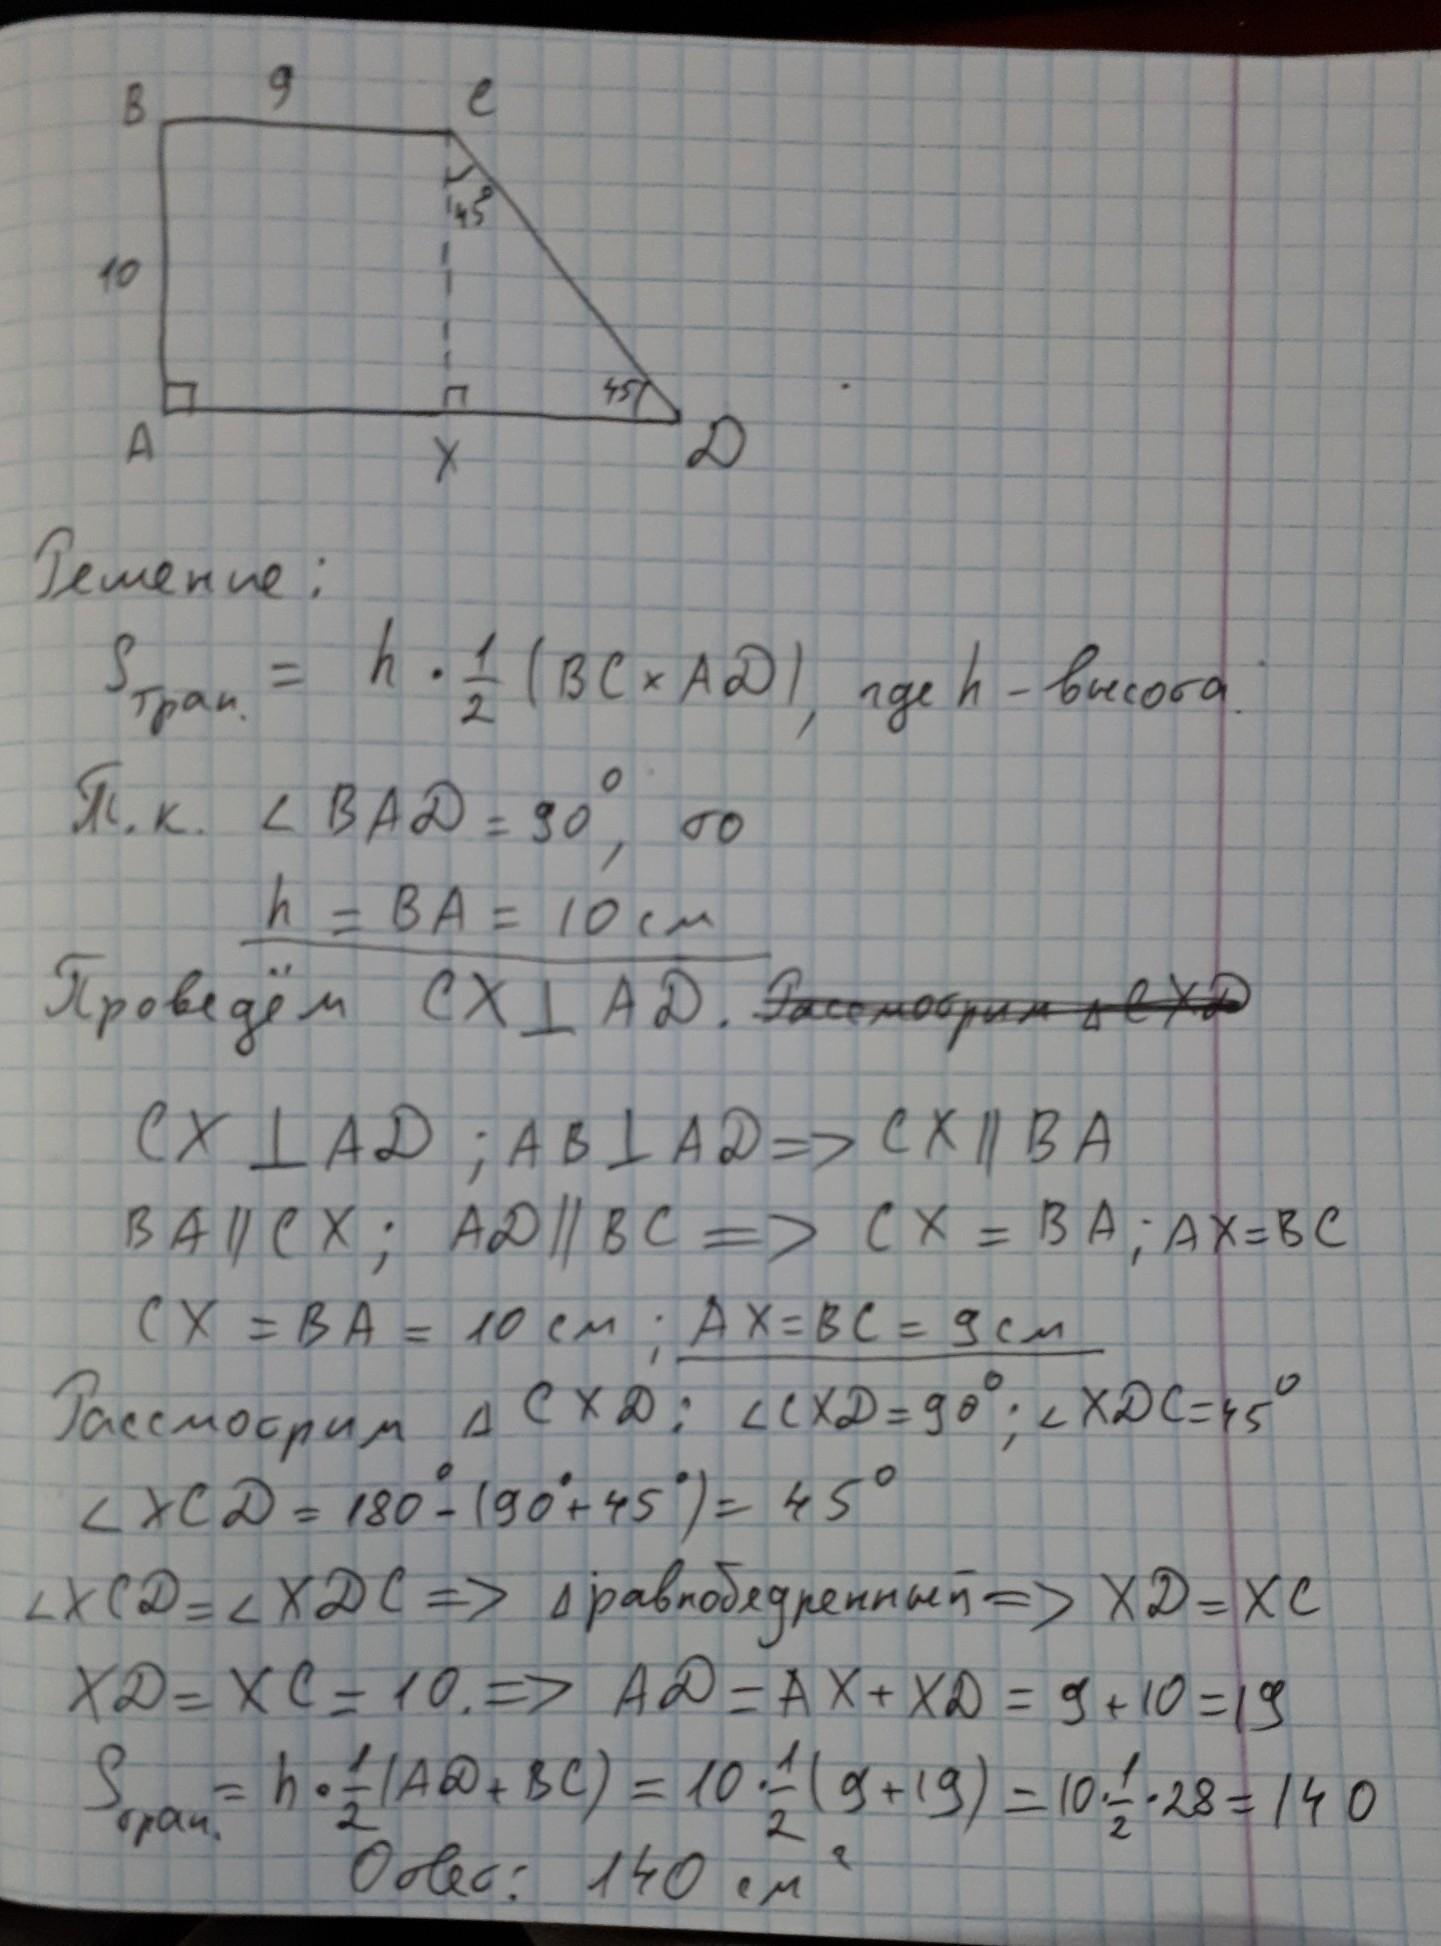 B 9 C
45°
10
45
A X D
Решение:
S трап. = h · 1/2 (BC × AD), где h - высота.
Т.к. ∠ BAD = 90°, то
h = BA = 10 см
Проведём CX ⊥ AD. Рассмотрим △ CXD
CX ⊥ AD ; AB ⊥ AD => CX || BA
BA || CX ; AD || BC => CX = BA ; AX = BC
CX = BA = 10 см ; AX = BC = 9 см
Рассмотрим △ CXD : ∠CXD = 90° ; ∠XDC = 45°
∠XCD = 180° - (90° + 45°) = 45°
∠XCD = ∠XDC => △ равнобедренный => XD = XC
XD = XC = 10. => AD = AX + XD = 9 + 10 = 19
S трап. = h · 1/2 (AD + BC) = 10 · 1/2 (9 + 19) = 10 · 1/2 · 28 = 140
Ответ: 140 см²